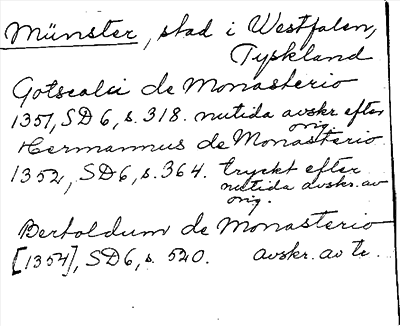 Münster, stad i Westfalen,
Tyskland
Gotscalci de Monasterio
1351, SD6, s. 318. nutida avskr efter
orig.
Hermannus de Monasterio
1352, SD6, s. 364. tryckt efter
nutida avskr. av
orig.
Bertoldum de Monasterio
[1354], SD6, s. 520. avskr. av tr.